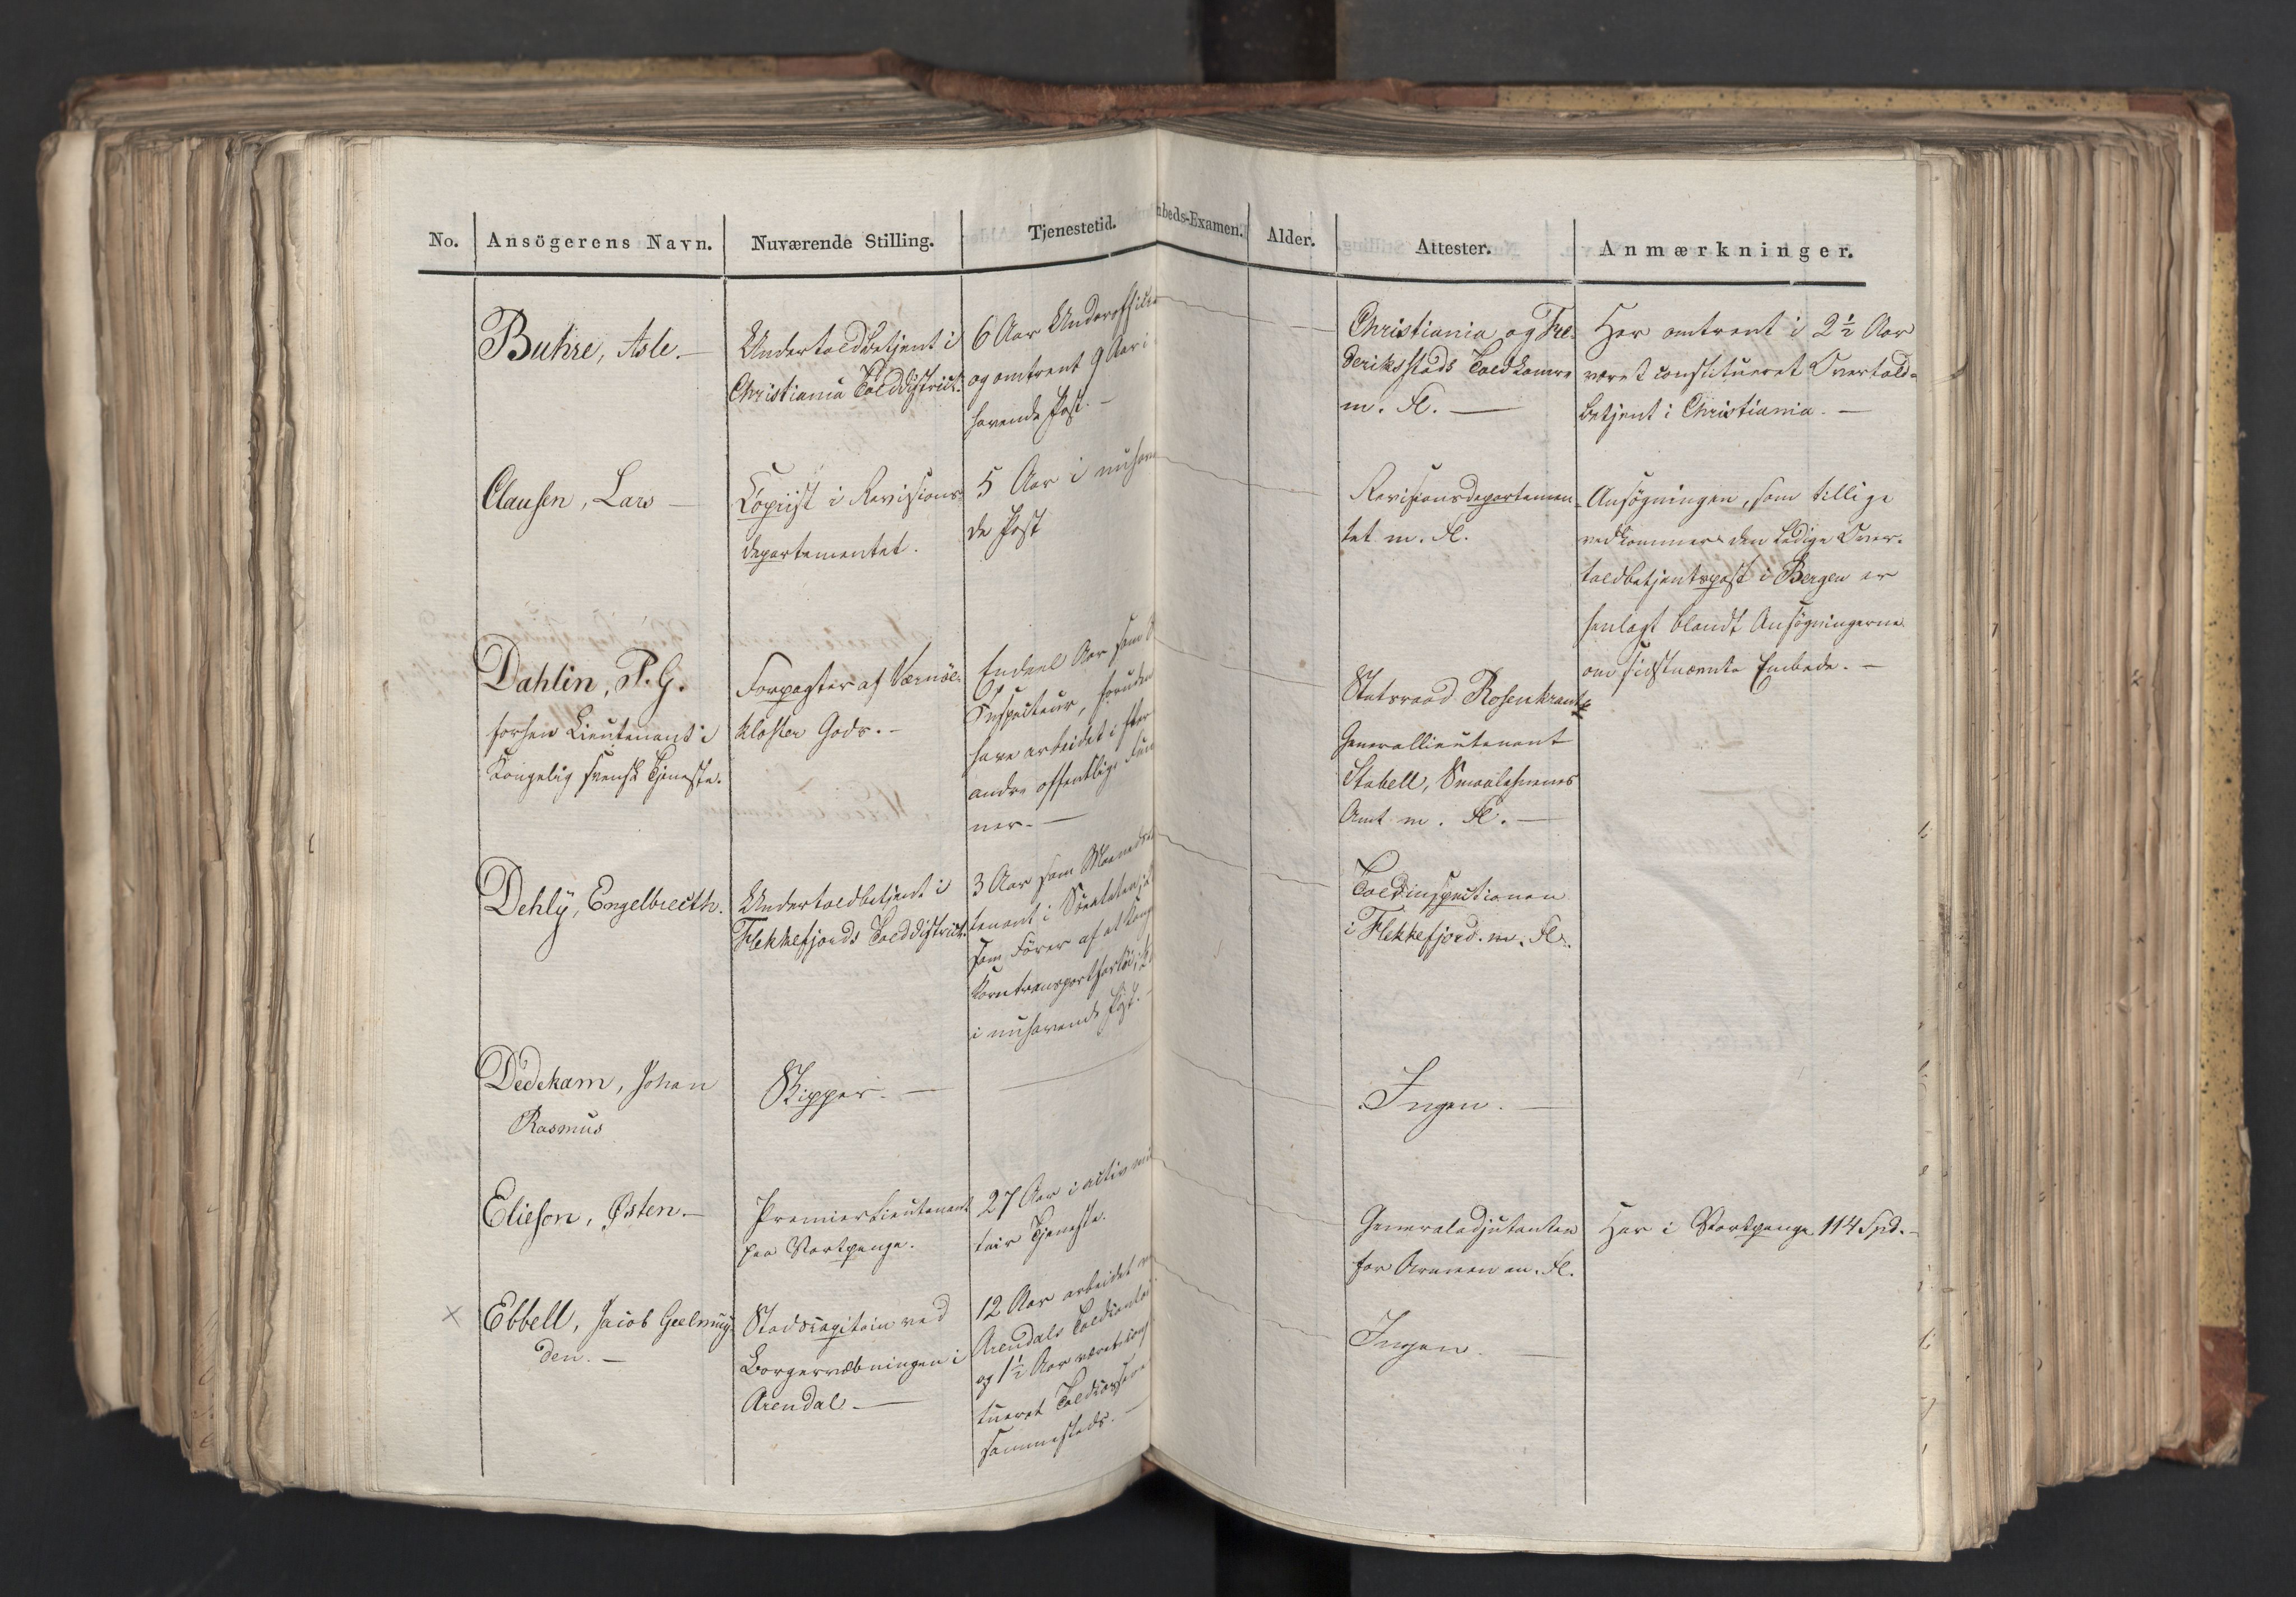 No. Ansögerens Navn. Nuværende Stilling. Tjenestetid. mbeds-Examen. Alder. Attester. Anmærkninger.
Buhre, Asle. —
Undertoldbetjent i
Christiania Tolddistrict.
6 Aar Underofficer
og omtrent 9 Aar i
havende Post. —
Christiania og Fre-
deriksstads Toldkamre
m. Fl. —
Har omtrent i 2 1/2 Aar
været constitueret Overtold-
betjent i Christiania. —
Clausen, Lars —
Copiist i Revisions-
departementet.
5 Aar i nuhaven
de Post
Revisionsdepartemen-
tet m. Fl.
Ansøgningen, som tillige
vedkommer den ledige Over-
toldbetjentspost i Bergen er
henlagt blandt Ansøgningerne
om sidstnævnte Embede. —
Dahlin, P. G.
forhen Lieutenant i
Kongelig svensk Tjeneste.
Forpagter af Værnöe
Kloster Gods. —
Endeel Aar som
Inspecteur, foruden
have arbeidet i fler
andre offentlige Fun
ner. —
Statsraad Rosenkrantz
Generallieutenant
Stabell, Smaalehnenes
Amt m. Fl. —
Dehly, Engelbrecth.
Undertoldbetjent i
Flekkefjords Tolddistrict.
3 Aar som Maaneds
tenant i Søeetaten,
som Fører af et Kong
Korntransportfartøi;
i nuhavende Post. —
Toldinspectionen
i Flekkefjord. m. Fl.
Dedekam, Johan
Rasmus
Skipper. —
Ingen. —
Elieson, Østen. —
Premierlieutenant
paa Vartpenge.
27 Aar i activ mili
tair Tjeneste.
Generaladjutanten
for Armeen m. Fl.
Har i Vartpenge 114 Spd. —
× Ebbell, Jacob Geelmuy-
den. —
Stadscapitain ved
Borgervæbningen i
Arendal. —
12 Aar arbeidet
Arendals Toldcontoi
og 1 1/2 Aar været const
tueret Toldcasserer
sammesteds. —
Ingen. —